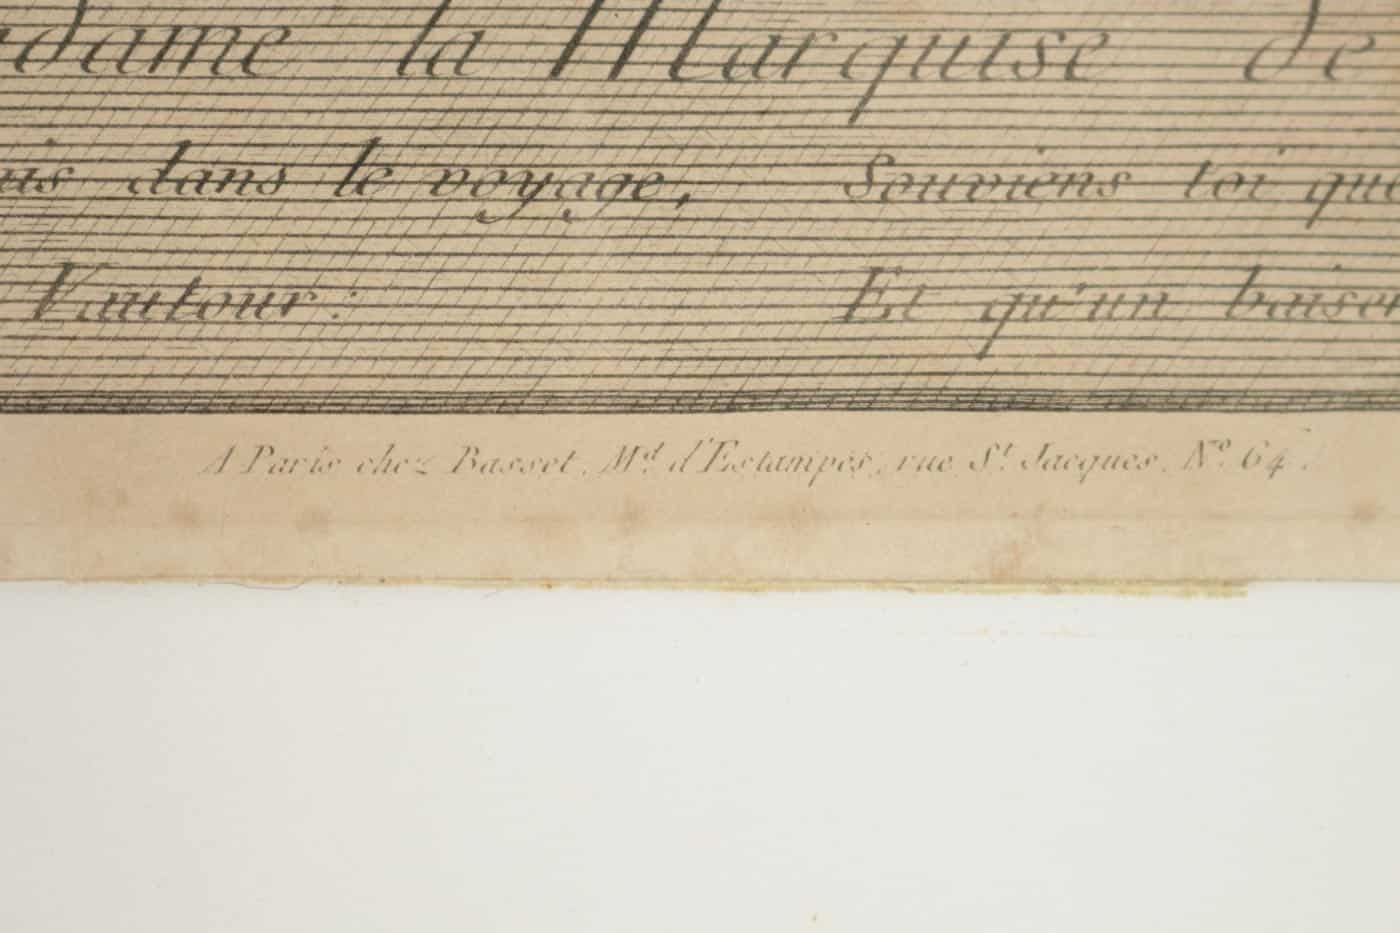 dame la Marquise de
dans le voyage, Souviens toi que
Vautour: Et qu'un baiser
A Paris chez Basset, M.d d'Estampes, rue S.t Jacques, N.o 64.